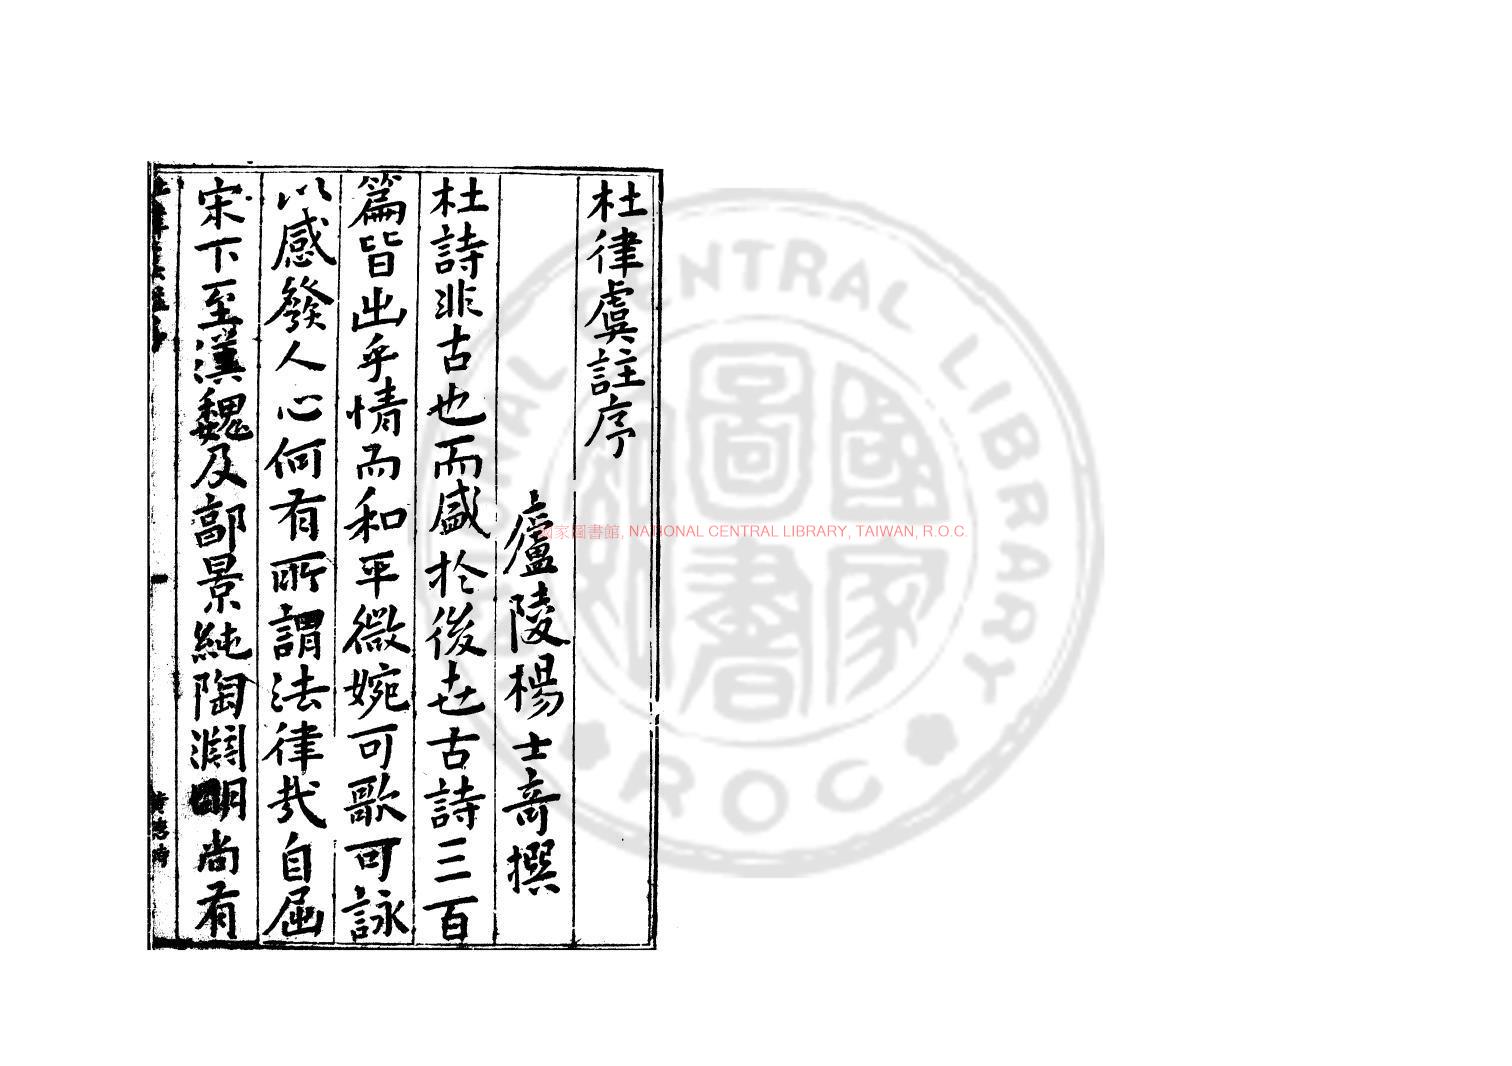 杜律虞註序
廬陵楊士竒撰
杜詩非古也而盛於後世古詩三百
篇皆出乎情而和平微婉可歌可詠
以感發人心何有所謂法律㢤自屈
宋下至漢魏及郭景純陶淵明尚有
國家圖書館, NATIONAL CENTRAL LIBRARY, TAIWAN, R.O.C.
NATIONAL CENTRAL LIBRARY
ROC
國家圖書